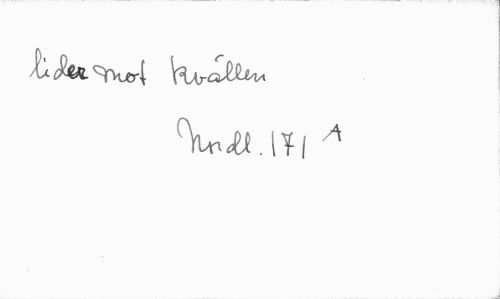 lider mot kvällen
Nordl. 171 A